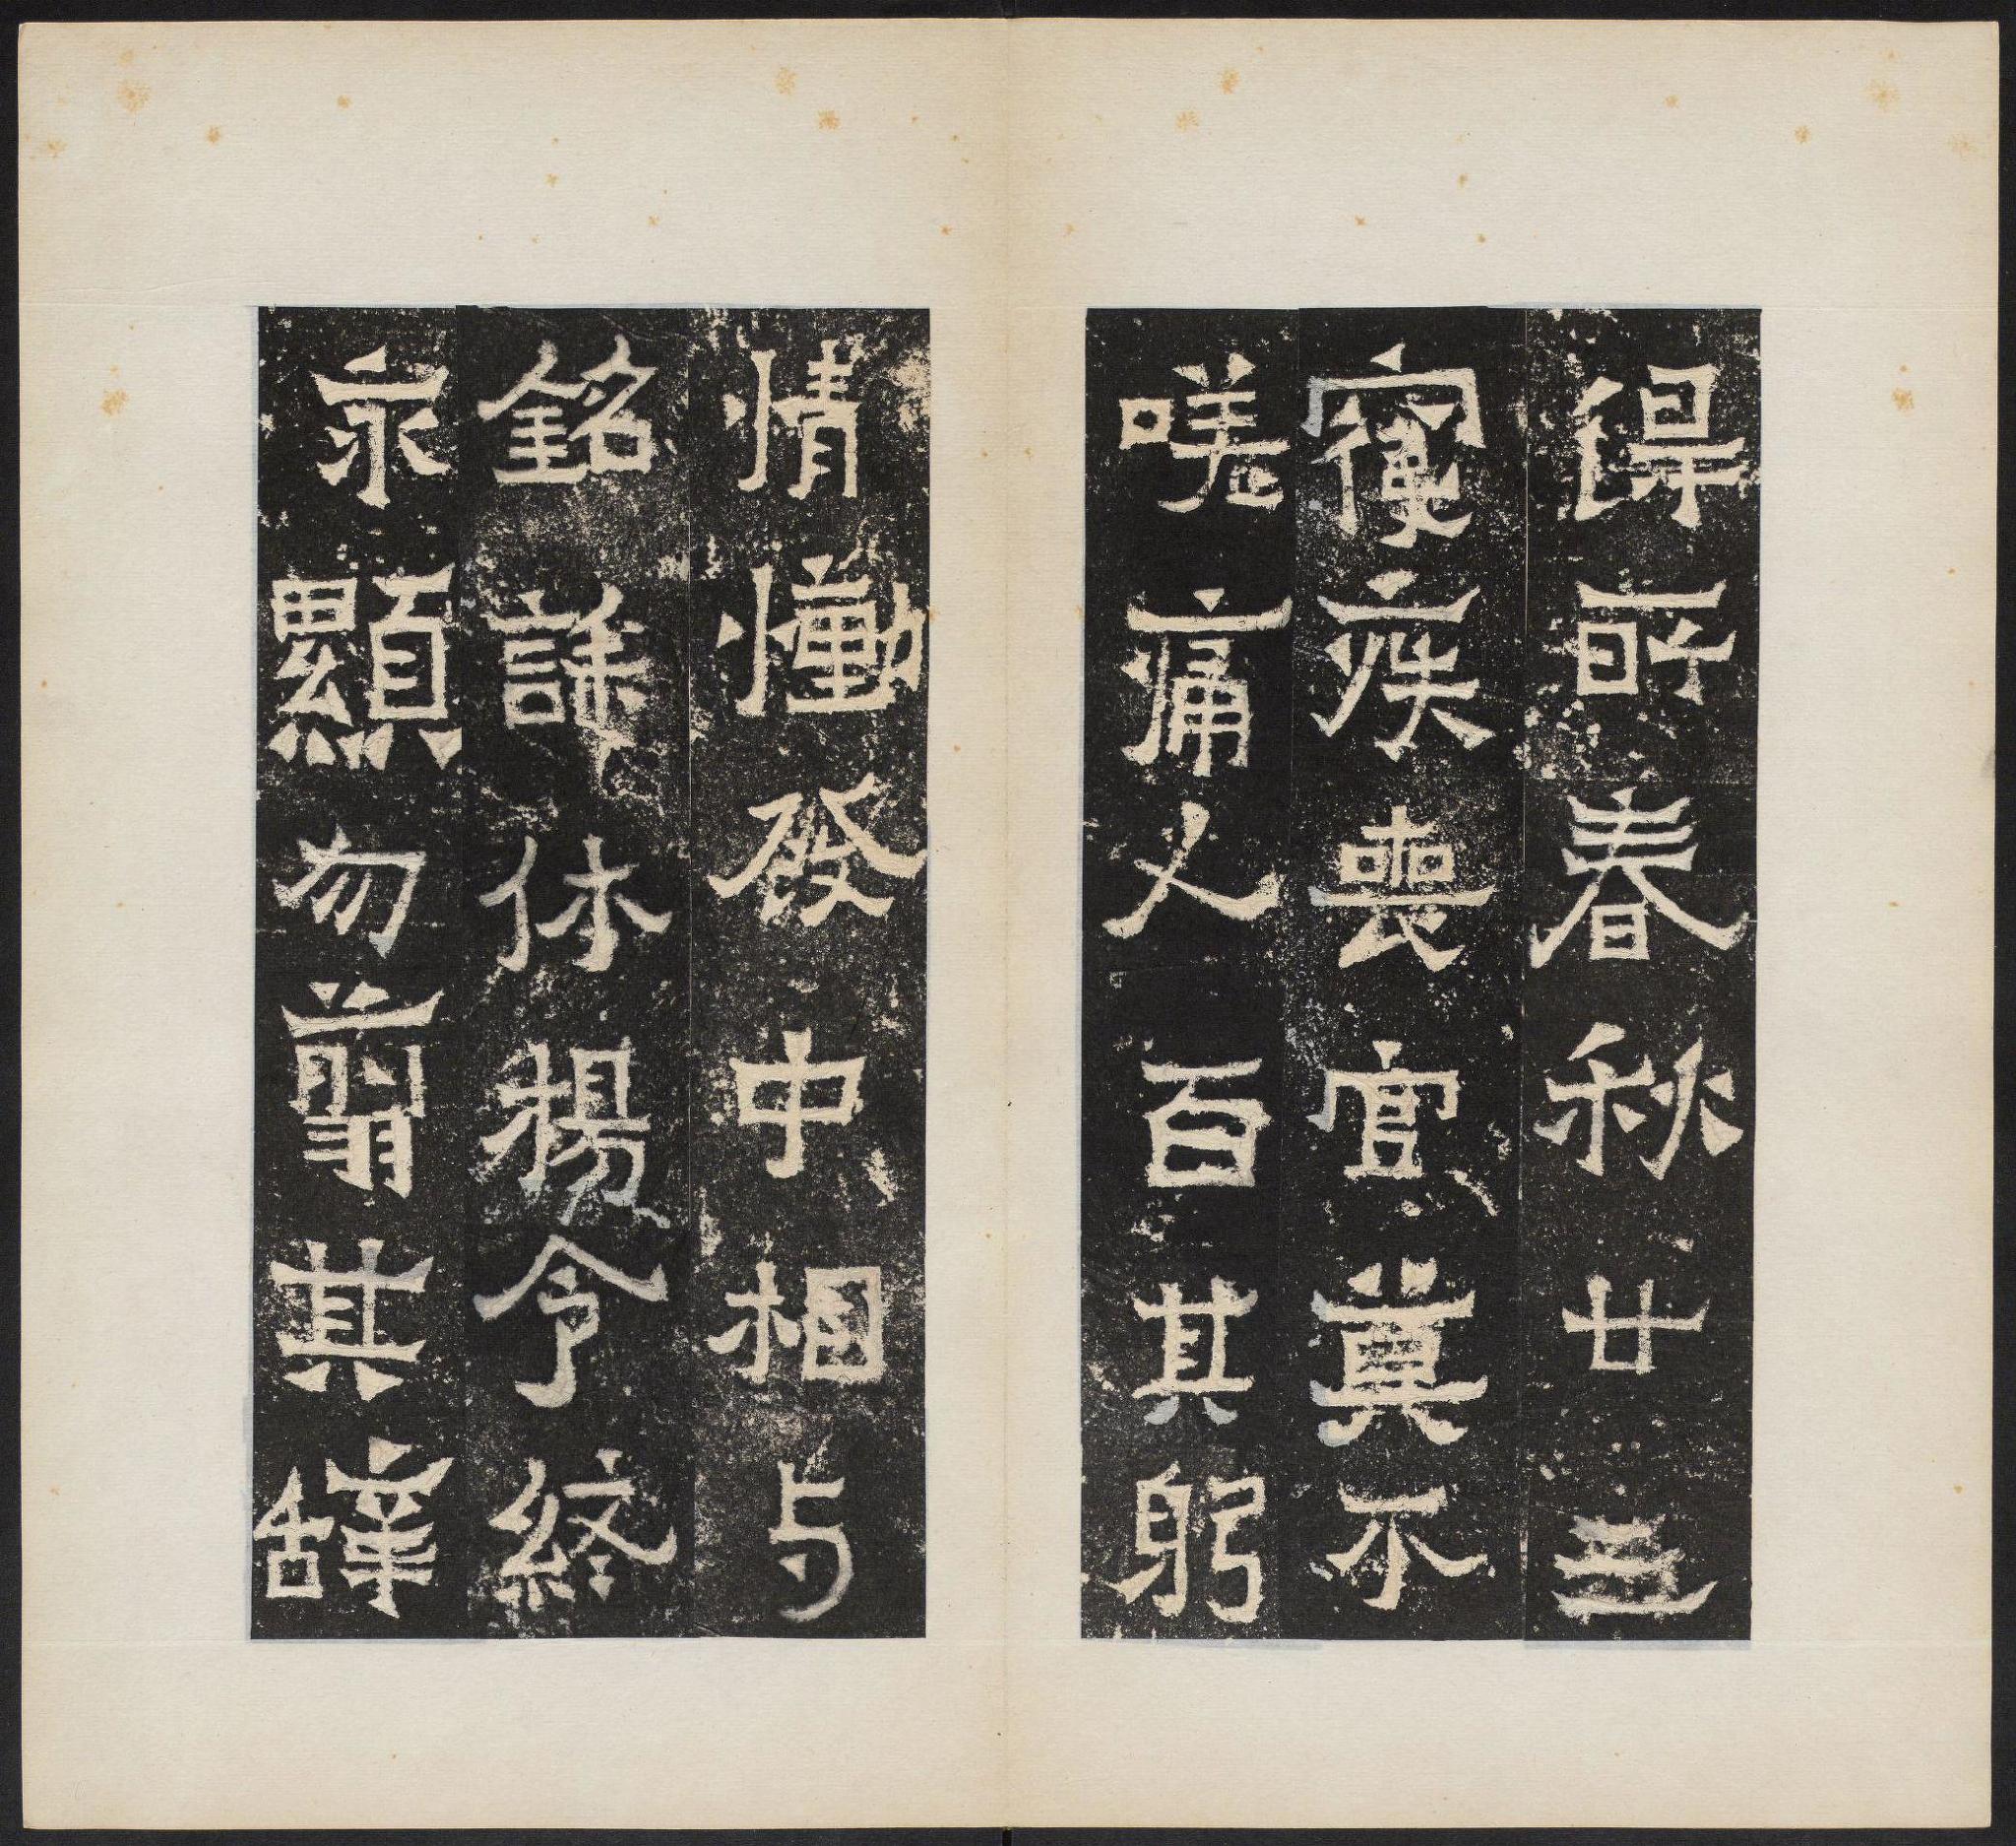 得所春秋廿三
寢疾喪官莫不
嗟痛人百其躬
情慟發中相与
銘誄休揚令終
永顯勿翦其辭